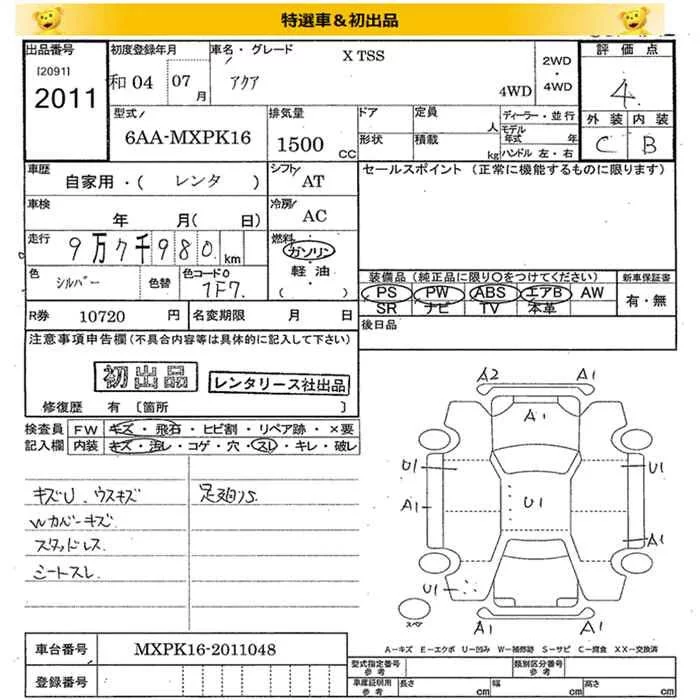 特選車&初出品
出品番号
[2091]
2011
初度登録年月
和04 07月
車名・グレード
X TSS
アクア
4WD
2WD
・
4WD
評価点
4
外装 内装
C B
型式
6AA-MXPK16
排気量
1500 CC
ドア
形状
定員 人
積載 kg
ディーラー・並行
モデル年式 年
ハンドル 左・右
車歴
自家用・( レンタ )
シフト
AT
セールスポイント (正常に機能するものに限ります)
車検
年 月( 日)
冷房
AC
走行
9万7千980 km
燃料
ガソリン
軽油
( )
色
シルバー
色替
色コードO
1F7
装備品 (純正品に限り〇をつけてください)
PS PW ABS エアB AW
SR ナビ TV 本革
新車保証書
有・無
R券 10720 円
名変期限 月 日
後日品
注意事項申告欄(不具合内容等は具体的に記入して下さい)
初出品
レンタリース社出品
修復歴 有 [箇所 ]
検査員記入欄
FW キズ・飛石・ヒビ割・リペア跡・×要
内装 キズ・汚レ・コゲ・穴・スレ・キレ・破レ
キズU. ウスキズ
Wカバーキズ
スタッドレス
シートスレ
A2 A1
A1
U1 U1
A1 U1
A1
U1
スペア
A1 A1
A-キズ E-エクボ U-凹み W-補修跡 S-サビ C-腐食 XX-交換済
車台番号 MXPK16-2011048
登録番号
型式指定番号 参考
類別区分番号 参考
車庫証明用 参考
長さ cm
幅 cm
高さ cm